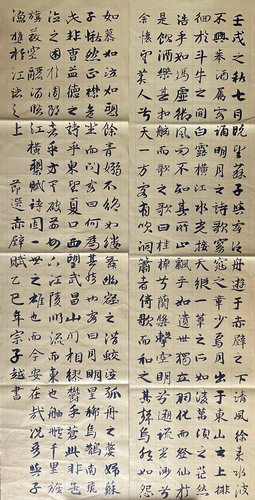 壬戌之秋七月既望蘇子與客泛舟遊于赤壁之下清風徐來水波
不興舉酒屬客誦明月之詩歌窈窕之章少焉月出于東山之上徘徊
於斗牛之間白露橫江水光接天縱一葦之所如凌萬頃之茫然
浩乎如馮虛御風而不知其所止飄乎如遺世獨立羽化而登仙於
是飲酒樂甚扣舷而歌之歌曰桂棹兮蘭槳擊空明兮溯流光渺渺兮
余懷望美人兮天一方客有吹洞簫者倚歌而和之其聲嗚嗚然如怨
如慕如泣如訴餘音嫋嫋不絕如縷舞幽壑之潛蛟泣孤舟之嫠婦蘇
子愀然正襟危坐而問客曰何為其然也客曰月明星稀烏鵲南飛
此非曹孟德之詩乎西望夏口東望武昌山川相繆鬱乎蒼蒼此非孟德
之困於周郎者乎方其破荊州下江陵順流而東也舳艫千里旌
旗蔽空釃酒臨江橫槊賦詩固一世之雄也而今安在哉況吾與子
漁樵於江渚之上 節選赤壁賦乙巳年宗子越書